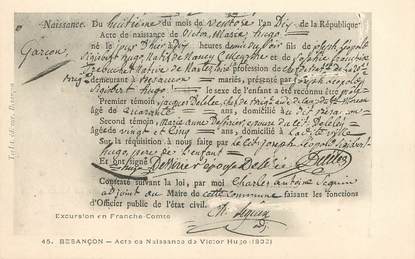 Naissance. Du huitième du mois de Ventose l'an Dix de la République
Acte de naissance de Victor, Marie hugo!
Garçon, né le jour D'hier à Dix heures et demie du soir fils de joseph Léopold
Sigisbert hugo Natif de Nancy et de Sophie françoise
Trebuchet Native de Nantes profession de
demeurant à Besançon mariés, présenté par joseph Léopold
Sigisbert hugo! le sexe de l'enfant a été reconnu être mâle
Premier témoin, jacques Delelée, chef de brigade
âgé de quarante ans, domicilié au dit Besançon
Second témoin, Marie anne Dessirier épouse du cit. Delelée
âgée de vingt et Cinq ans, domiciliée à la dite ville
Sur la réquisition à nous faite par le cit. joseph Léopold Sigisbert
hugo, père de l'enfant
Et ont signé
Hugo Dessirier épouse Delelée Delelée
Constaté suivant la loi, par moi Charles antoine Seguin
adjoint au Maire de cette commune faisant les fonctions
d'Officier public de l'état civil.
Ch. Seguin
adj.
Excursion en Franche-Comté
45. BESANÇON — Acte de Naissance de Victor Hugo (1802)